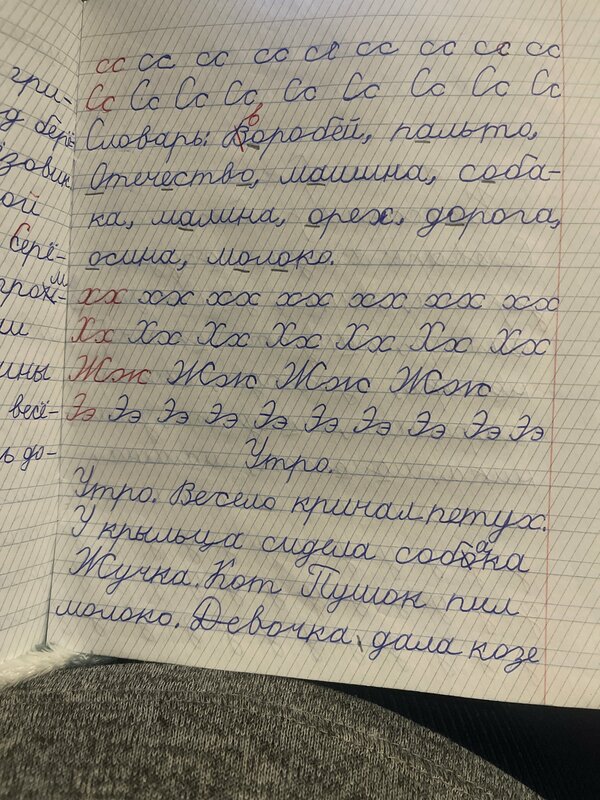 гри-
д берё-
зовик
ой
берё-
м
прож-
ш
ины
весё-
ь до-
сс сс сс сс сс сс сс сс сс
Сс Сс Сс Сс Сс Сс Сс Сс Сс
в
Словарь: Воробей, пальто,
Отечество, машина, соба-
ка, малина, орех, дорога,
осина, молоко.
хх хх хх хх хх хх хх
Хх Хх Хх Хх Хх Хх Хх
Жж Жж Жж Жж
Ээ Ээ Ээ Ээ Ээ Ээ Ээ Ээ Ээ Ээ
Утро.
Утро. Весело кричал петух.
У крыльца сидела собака
Жучка. Кот Пушок пил
молоко. Девочка дала козе